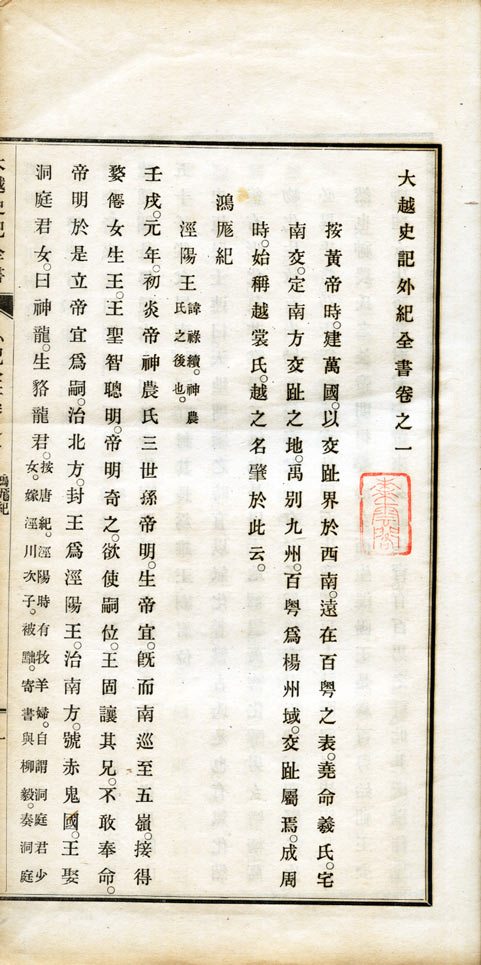 大越史記外紀全書卷之一
按黃帝時。建萬國。以交趾界於西南。遠在百粵之表。堯命羲氏。宅
南交。定南方交趾之地。禹別九州。百粵爲楊州域。交趾屬焉。成周
時。始稱越裳氏。越之名肇於此云。
鴻厖紀
涇陽王
諱祿續。神農
氏之後也。
壬戌。元年。初炎帝神農氏三世孫帝明。生帝宜。旣而南巡至五嶺。接得
婺僊女生王。王聖智聰明。帝明奇之。欲使嗣位。王固讓其兄。不敢奉命。
帝明於是立帝宜爲嗣。治北方。封王爲涇陽王。治南方。號赤鬼國。王娶
洞庭君女。曰神龍。生貉龍君。
按唐紀。涇陽時有牧羊婦。自謂洞庭君少
女。嫁涇川次子。被黜。寄書與柳毅。奏洞庭
鴻厖紀